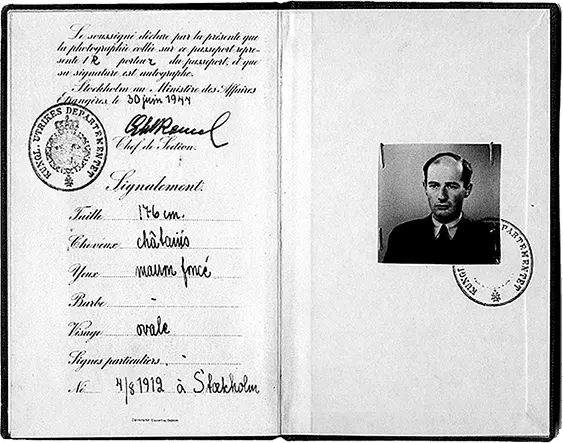 Le soussigné déclare par la présente que
la photographie collée sur ce passeport repré-
sente le porteur du passeport, et que
sa signature est autographe.
Stockholm au Ministère des Affaires
Etrangères le 30 juin 1944
Chef de Section.
KUNGL. UTRIKES DEPARTEMENTET
Signalement.
Taille 176 cm.
Cheveux châtains
Yeux marron foncé
Barbe -
Visage ovale
Signes particuliers -
Né 4/8 1912 à Stockholm
KUNGL. PARTEMENTET